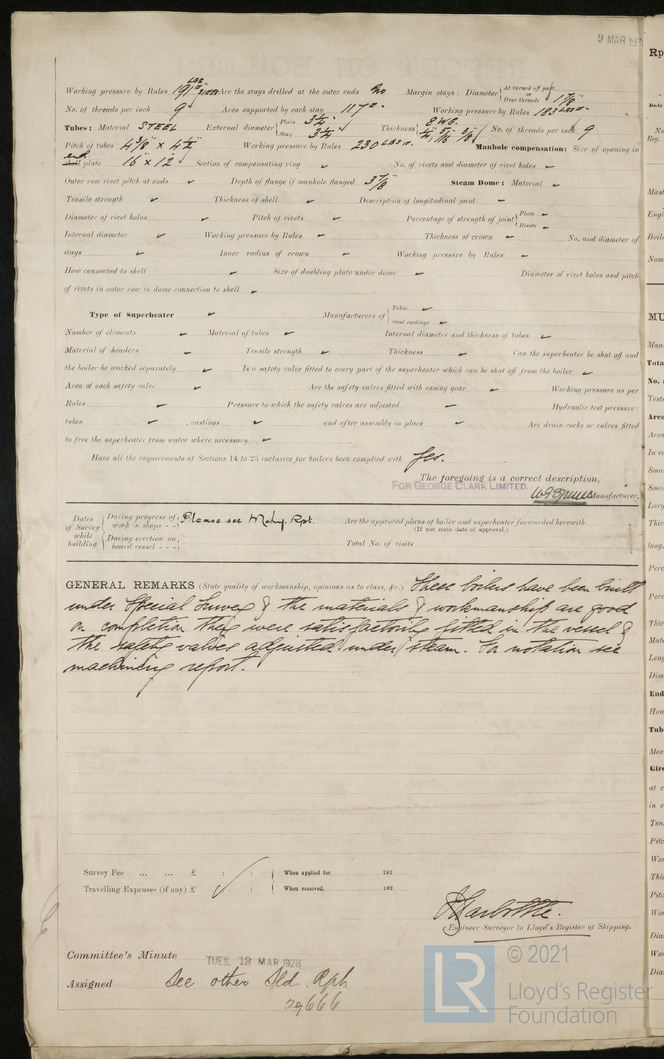 9 MAR 192
Working pressure by Rules 191 LBS Are the stays drilled at the outer ends No Margin stays: Diameter {At turned off part, or Over threads 1 7/8"
No. of threads per inch 9 Area supported by each stay 117 Working pressure by Rules 183 LBS
Tubes: Material STEEL External diameter {Plain 3 1/4" Stay 3 1/4" Thickness {8 WG. 1/4", 5/16", 3/8" No. of threads per inch 9
Pitch of tubes 4 3/8" x 4 1/2" Working pressure by Rules 230 LBS Manhole compensation: Size of opening in
end plate 16" x 12" Section of compensating ring ✓ No. of rivets and diameter of rivet holes ✓
Outer row rivet pitch at ends ✓ Depth of flange if manhole flanged 3 7/8" Steam Dome: Material ✓
Tensile strength ✓ Thickness of shell ✓ Description of longitudinal joint ✓
Diameter of rivet holes ✓ Pitch of rivets ✓ Percentage of strength of joint {Plate ✓ Rivets ✓
Internal diameter ✓ Working pressure by Rules ✓ Thickness of crown ✓ No. and diameter of
stays ✓ Inner radius of crown ✓ Working pressure by Rules ✓
How connected to shell ✓ Size of doubling plate under dome ✓ Diameter of rivet holes and pitch
of rivets in outer row in dome connection to shell ✓
Type of Superheater ✓ Manufacturers of {Tubes ✓ Steel castings ✓
Number of elements ✓ Material of tubes ✓ Internal diameter and thickness of tubes ✓
Material of headers ✓ Tensile strength ✓ Thickness ✓ Can the superheater be shut off and
the boiler be worked separately ✓ Is a safety valve fitted to every part of the superheater which can be shut off from the boiler ✓
Area of each safety valve ✓ Are the safety valves fitted with easing gear ✓ Working pressure as per
Rules ✓ Pressure to which the safety valves are adjusted ✓ Hydraulic test pressure:
tubes ✓ , castings ✓ and after assembly in place ✓ Are drain cocks or valves fitted
to free the superheater from water where necessary ✓
Have all the requirements of Sections 14 to 23 inclusive for boilers been complied with Yes.
The foregoing is a correct description,
FOR GEORGE CLARK LIMITED.
Manufacturer.
Dates of Survey while building {During progress of work in shops - - Please see Mchy. Rpt. Are the approved plans of boiler and superheater forwarded herewith
(If not state date of approval.)
{During erection on board vessel - - - Total No. of visits
GENERAL REMARKS (State quality of workmanship, opinions as to class, &c.) These boilers have been built
under Special Survey & the materials & workmanship are good
on completion they were satisfactorily fitted in the vessel &
the safety valves adjusted under steam. For notation see
machinery report.
Survey Fee ... ... £ : : When applied for, 192
Travelling Expenses (if any) £ : : When received, 192
Engineer Surveyor to Lloyd's Register of Shipping.
Committee's Minute TUES. 13 MAR 1928
Assigned See other Sld. Rpt
29666
LR
© 2021
Lloyd's Register
Foundation